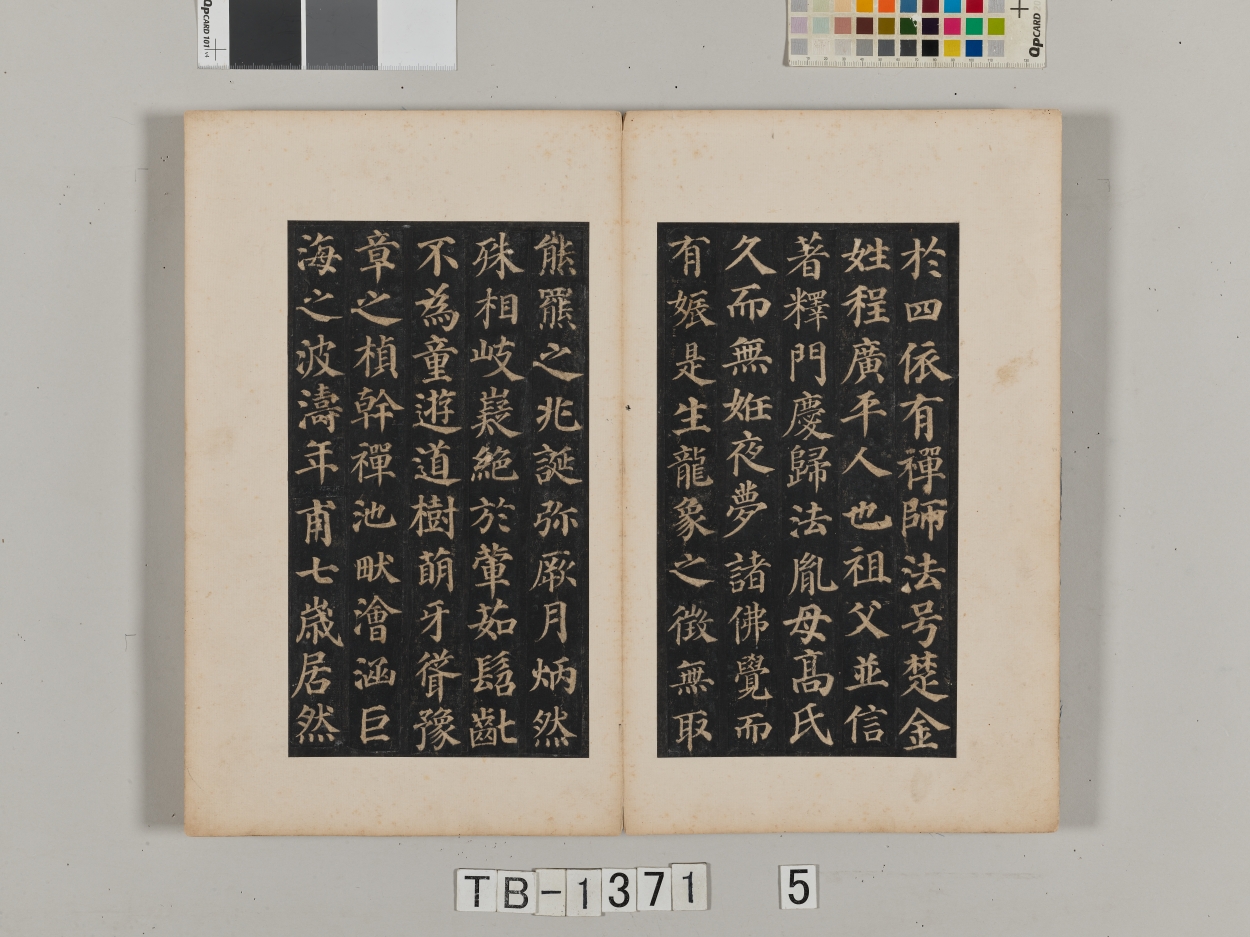 於四依有禪師法号楚金
姓程廣平人也祖父並信
著釋門慶歸法胤母高氏
久而無姙夜夢諸佛覺而
有娠是生龍象之徵無取
熊羆之兆誕弥厥月炳然
殊相岐嶷絶於葷茹髫齔
不為童遊道樹萌牙聳豫
章之楨幹禪池畎澮涵巨
海之波濤年甫七歳居然
TB-1371 5
QPCARD 101 v4
QPCARD